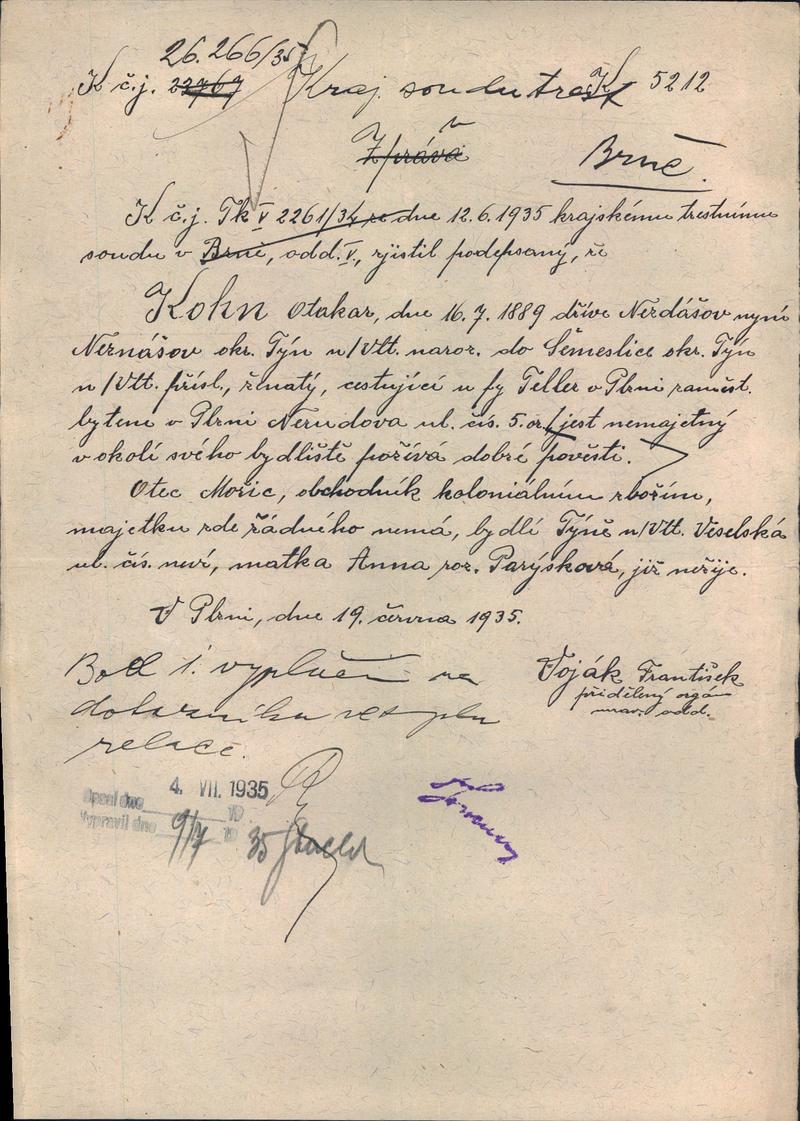 26.266/35
K č.j. 22767 Kraj. soudu trest K 5212
v
Zpráva Brně.
K č.j. Tk V 2261/34 ze dne 12.6.1935 krajskému trestnímu
soudu v Brně, odd. V., zjistil podepsaný, že
Kohn Otakar, dne 16.7.1889 dříve Nerdášov nyní
Neznášov okr. Týn n/Vlt. naroz. do Čmeslice okr. Týn
n/Vlt. přísl., ženatý, cestující u fy Teller v Plzni zaměst.
bytem v Plzni Nerudova ul. čís. 5. or. jest nemajetný
v okolí svého bydliště požívá dobré pověsti.
Otec Mořic, obchodník koloniálním zbožím,
majetku zde žádného nemá, bydlí Týně n/Vlt. Veselská
ul. čís. neví, matka Anna roz. Parýsková, již nežije.
V Plzni, dne 19. června 1935.
Bod 1. vyplněn na
dotazníku
relace.
Voják František
přidělený orgán
mrav. odd.
4. VII. 1935
Opsal dne 19
Vypravil dne 9/7 19 35